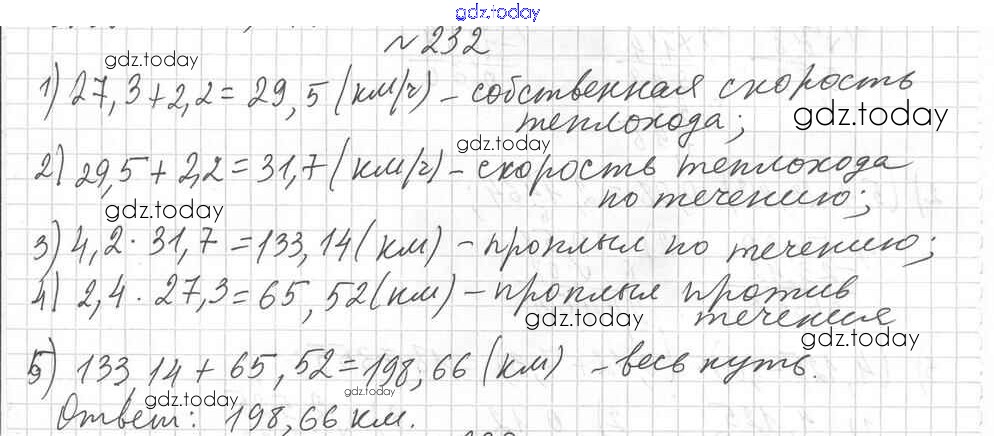 gdz.today
№232
gdz.today
1) 27,3+2,2=29,5(км/ч) – собственная скорость
теплохода;
gdz.today
gdz.today
2) 29,5+2,2=31,7(км/ч) – скорость теплохода
по течению;
gdz.today
3) 4,2·31,7=133,14(км) – проплыл по течению;
4) 2,4·27,3=65,52(км) – проплыл против
течения
gdz.today
gdz.today
5) 133,14+65,52=198,66(км) – весь путь.
gdz.today
gdz.today
Ответ: 198,66 км.